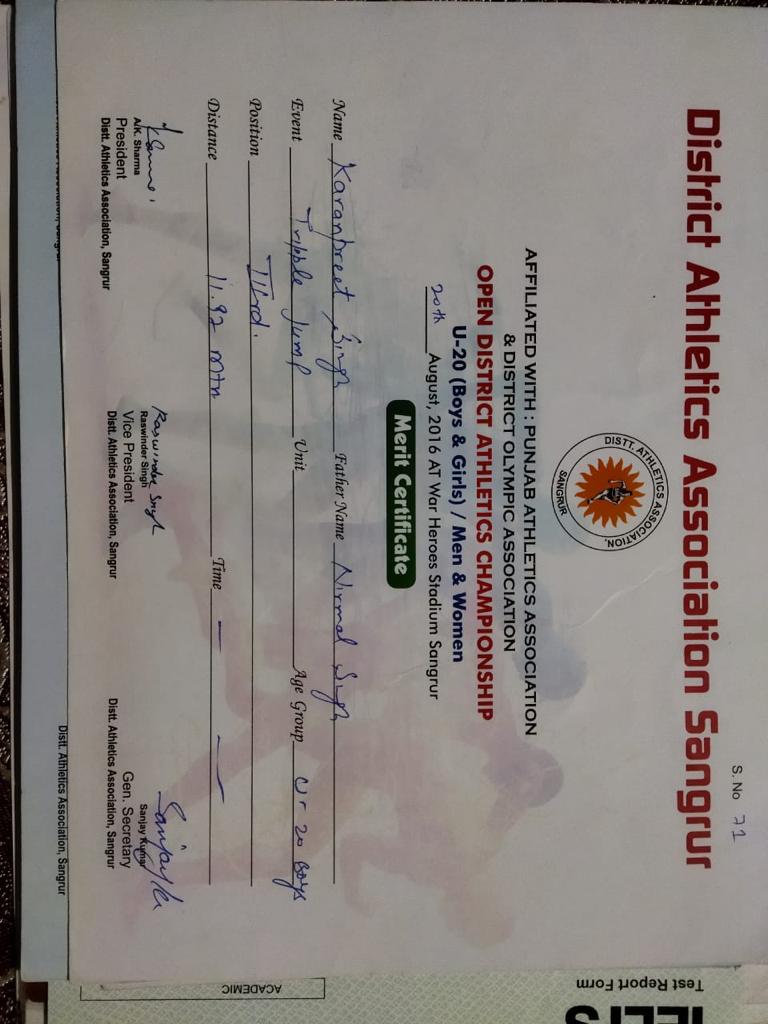 S. No 71
District Athletics Association Sangrur
DISTT. ATHLETICS ASSOCIATION.
SANGRUR
AFFILIATED WITH : PUNJAB ATHLETICS ASSOCIATION
& DISTRICT OLYMPIC ASSOCIATION
OPEN DISTRICT ATHLETICS CHAMPIONSHIP
U-20 (Boys & Girls) / Men & Women
20th August, 2016 AT War Heroes Stadium Sangrur
Merit Certificate
Name Karanpreet Singh Father Name Nirmal Singh
Event Tripple Jump Unit Age Group U-20 Boys
Position IIIrd.
Distance 11.92 mtr Time — —
Raswinder Singh
A.K. Sharma Raswinder Singh Sanjay Kumar
President Vice President Gen. Secretary
Distt. Athletics Association, Sangrur Distt. Athletics Association, Sangrur Distt. Athletics Association, Sangrur
Distt. Athletics Association, Sangrur
IELTS
Test Report Form
ACADEMIC